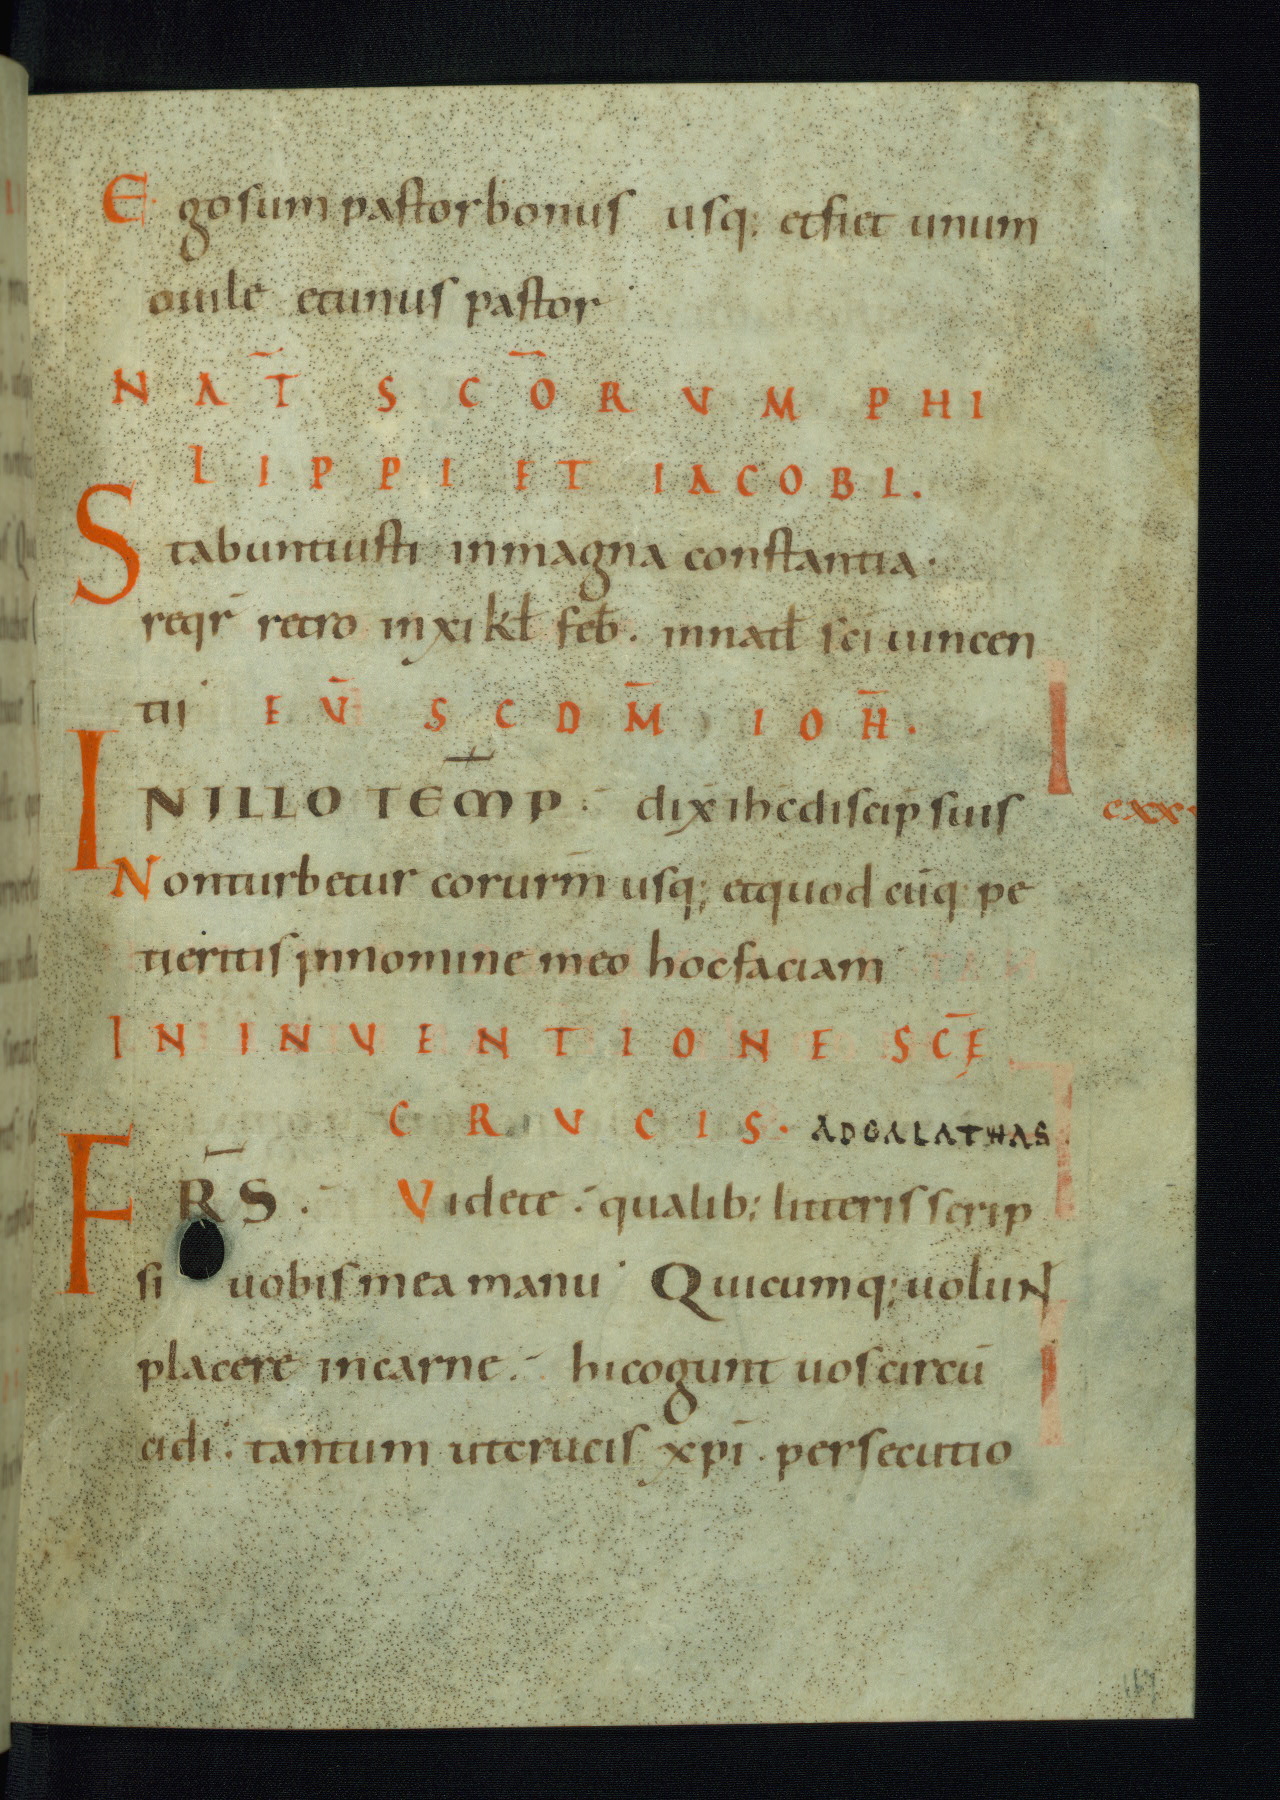 Ego sum pastor bonus usq; et fiet unum
ouile et unus pastor
NAT̄ SC̄ORVM PHI
LIPPI ET IACOBI.
Stabunt iusti in magna constantia·
reqr̄ retro in xi kl̄ feb̄. in natl̄ sc̄i uincen
tii EV̄ SCDM̄ IOH̄.
IN ILLO TEM̄P. dix ih̄c discip suis
cxx·
Non turbetur cor ur̄m usq; et quod cūq; pe
tieritis in nomine meo hoc faciam
IN INVENTIONE SC̄Ę
CRVCIS. AD GALATHAS
FR̄S. Videte qualib; litteris scrip
si uobis mea manu Quicumq; uolunt
placere in carne. hi cogunt uos circū
cidi. tantum ut crucis xp̄i. persecutio
167